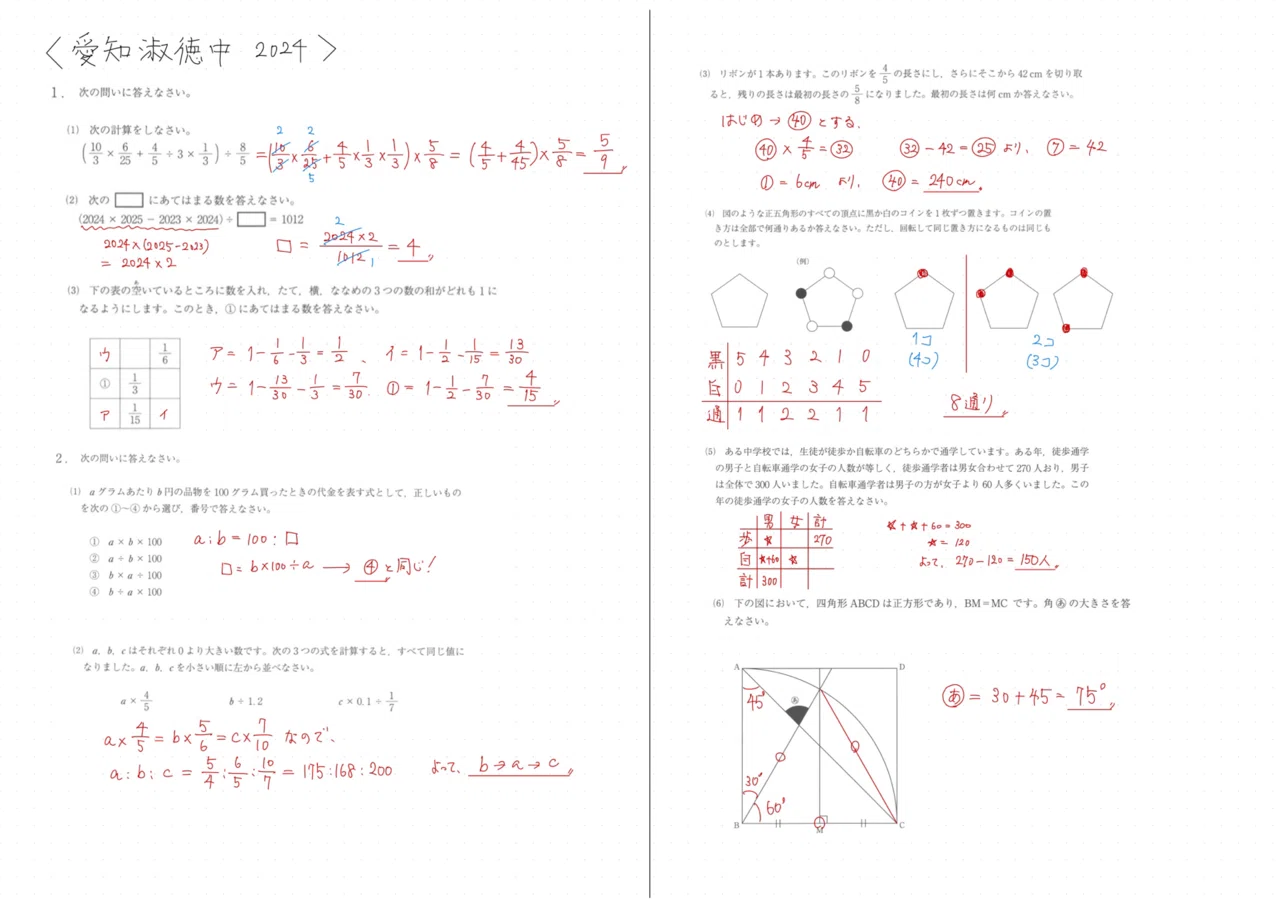 〈愛知淑徳中 2024〉
1. 次の問いに答えなさい。
(1) 次の計算をしなさい。
(10/3 × 6/25 + 4/5 ÷ 3 × 1/3) ÷ 8/5 = (10/3 × 6/25 + 4/5 × 1/3 × 1/3) × 5/8 = (4/5 + 4/45) × 5/8 = 5/9
2 2 5
(2) 次の□にあてはまる数を答えなさい。
(2024 × 2025 − 2023 × 2024) ÷ □ = 1012
2024×(2025-2023)
= 2024×2
□ = 2024×2/1012 = 4
2 1
(3) 下の表の空いているところに数を入れ，たて，横，ななめの3つの数の和がどれも1に
あ
なるようにします。このとき，①にあてはまる数を答えなさい。
ウ 1/6
① 1/3
ア 1/15 イ
ア = 1 - 1/6 - 1/3 = 1/2 、 イ = 1 - 1/2 - 1/15 = 13/30
ウ = 1 - 13/30 - 1/3 = 7/30. ① = 1 - 1/2 - 7/30 = 4/15
2. 次の問いに答えなさい。
(1) aグラムあたりb円の品物を100グラム買ったときの代金を表す式として，正しいもの
を次の①〜④から選び，番号で答えなさい。
① a × b × 100
② a ÷ b × 100
③ b × a ÷ 100
④ b ÷ a × 100
a:b = 100:□
□ = b×100÷a → ④と同じ!
(2) a，b，cはそれぞれ0より大きい数です。次の3つの式を計算すると，すべて同じ値に
なりました。a，b，cを小さい順に左から並べなさい。
a × 4/5 b ÷ 1.2 c × 0.1 ÷ 1/7
a×4/5 = b×5/6 = c×7/10 なので、
a:b:c = 5/4:6/5:10/7 = 175:168:200 よって、 b→a→c
(3) リボンが1本あります。このリボンを4/5の長さにし，さらにそこから42cmを切り取
ると，残りの長さは最初の長さの5/8になりました。最初の長さは何cmか答えなさい。
はじめ→㊵とする.
㊵×4/5=㉜ ㉜-42=㉕より、 ⑦=42
①=6cm より、 ㊵=240cm.
(4) 図のような正五角形のすべての頂点に黒か白のコインを1枚ずつ置きます。コインの置
き方は全部で何通りあるか答えなさい。ただし，回転して同じ置き方になるものは同じも
のとします。
(例)
1コ
(4コ)
2コ
(3コ)
黒 5 4 3 2 1 0
白 0 1 2 3 4 5
通 1 1 2 2 1 1
8通り
(5) ある中学校では，生徒が徒歩か自転車のどちらかで通学しています。ある年，徒歩通学
の男子と自転車通学の女子の人数が等しく，徒歩通学者は男女合わせて270人おり，男子
は全体で300人いました。自転車通学者は男子の方が女子より60人多くいました。この
年の徒歩通学の女子の人数を答えなさい。
男 女 計
歩 ★ 270
自 ★+60 ★
計 300
★+★+60=300
★=120
よって、270-120=150人.
(6) 下の図において，四角形ABCDは正方形であり，BM＝MCです。角㋐の大きさを答
えなさい。
A D
45°
あ
30°
60°
B M C
あ = 30+45 = 75°